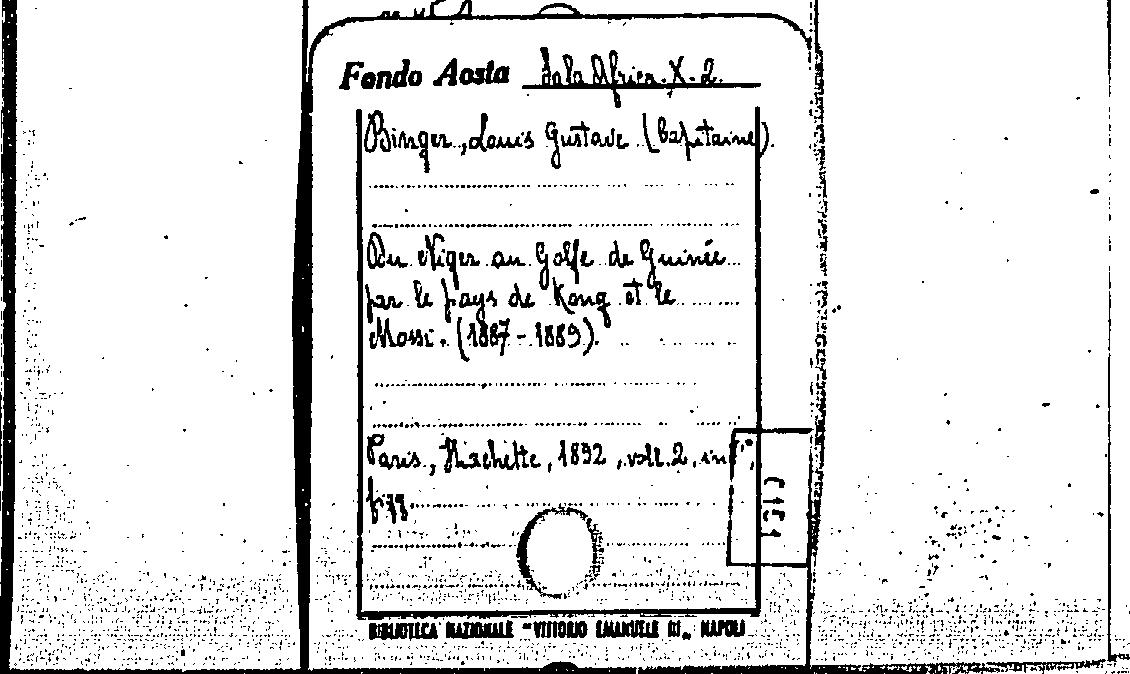 Fondo Aosta Sala Africa. X. 2.
Binger, Louis Gustave (Capitaine).
Du Niger au Golfe de Guinée
par le pays de Kong et le
Mossi. (1887 - 1889).
Paris, Hachette, 1892, voll. 2, in
BIBLIOTECA NAZIONALE "VITTORIO EMANUELE III" NAPOLI